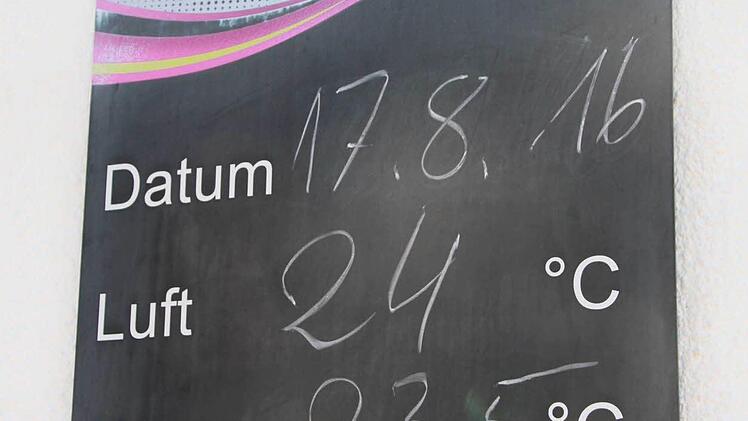 Datum 17.8.16
Luft 24 °C
°C